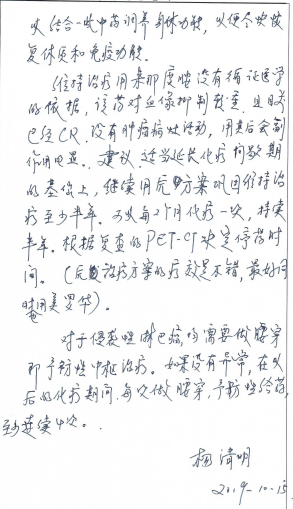 以结合一些中药调养身体功能，以便尽快恢
复体质和免疫功能。
维持治疗用来那度胺没有循证医学
的依据，该药对血像抑制较重，且目前
已经CR，没有肿瘤病灶活动，用来后会副
作用明显。建议适当延长化疗间歇期
的基础上，继续用原方案巩固维持治
疗至少半年。可以每2个月化疗一次，持续
半年。根据复查的PET-CT决定停药时
间。（后治疗方案的疗效是不错，最好同
时用美罗华）。
对于侵袭性淋巴癌，均需要做腰穿
即予防性中枢治疗。如果没有异常，在以
后的化疗期间，每次做腰穿，予防性给药，
至少连续4次。
杨清明
2019-10-15